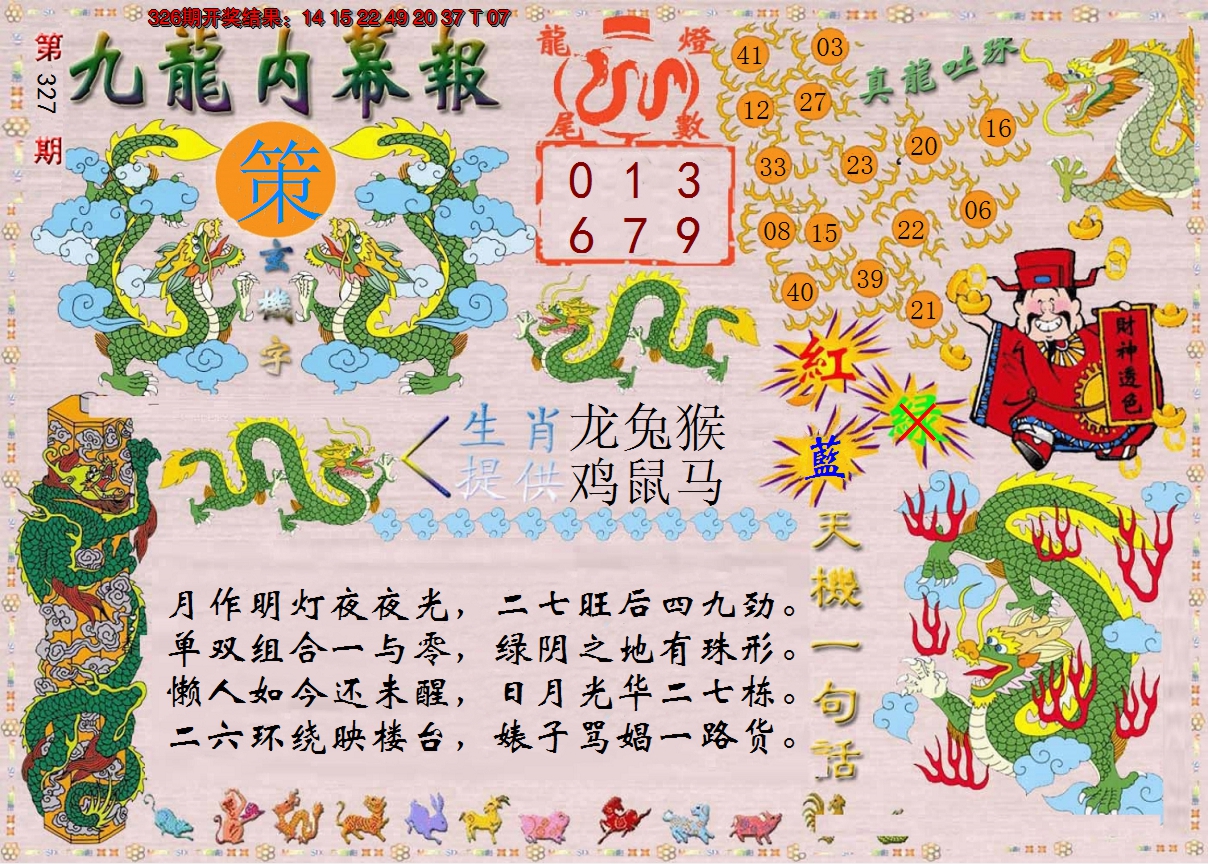 326期开奖结果：14 15 22 49 20 37 T 07
第327期
九龍内幕報
策
玄機字
龍燈尾數
0 1 3
6 7 9
真龍吐珠
41 03
12 27
33 23 20 16
08 15 22 06
40 39 21
財神透色
紅
绿
藍
生肖提供
龙兔猴
鸡鼠马
天機一句話
月作明灯夜夜光，二七旺后四九劲。
单双组合一与零，绿阴之地有珠形。
懒人如今还未醒，日月光华二七栋。
二六环绕映楼台，婊子骂娼一路货。